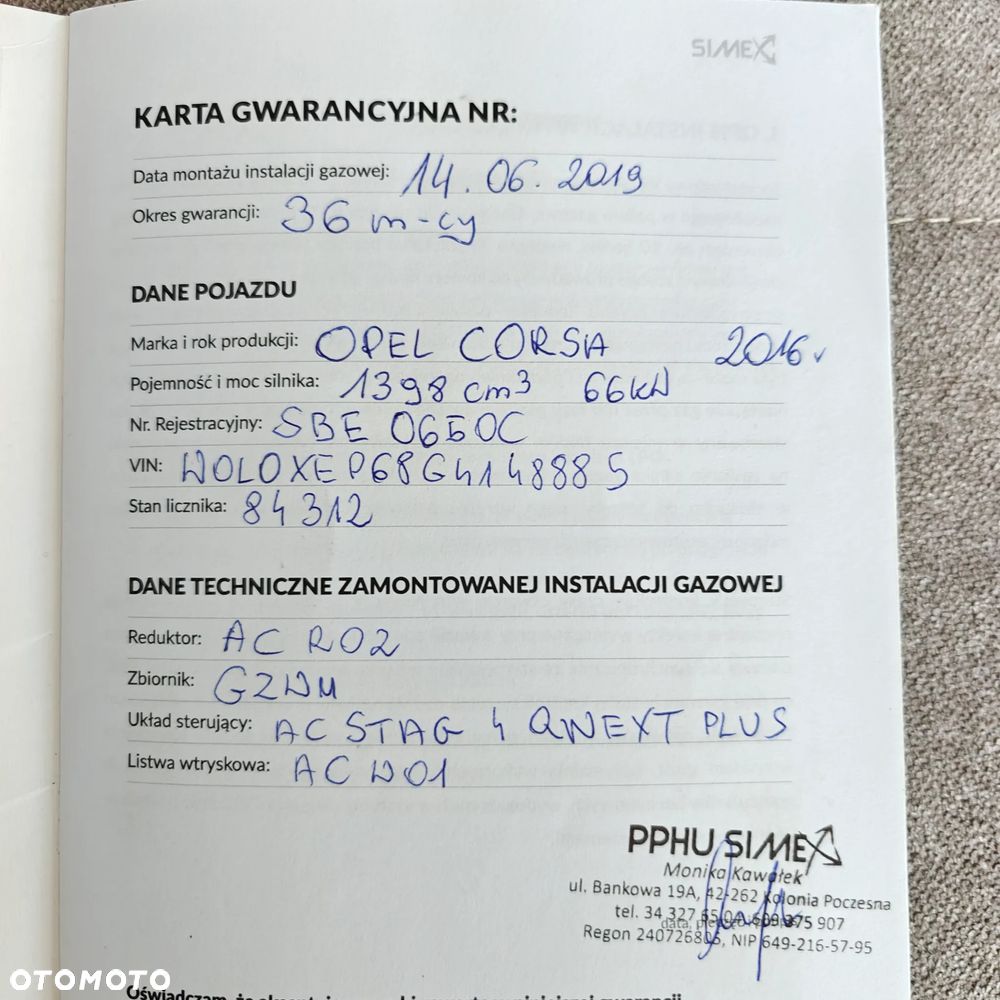 SIMEX
KARTA GWARANCYJNA NR:
Data montażu instalacji gazowej: 14.06.2019
Okres gwarancji: 36 m-cy
DANE POJAZDU
Marka i rok produkcji: OPEL CORSA 2016
Pojemność i moc silnika: 1398 cm3 66kW
Nr. Rejestracyjny: SBE 0650C
VIN: W0L0XEP68G4148885
Stan licznika: 84312
DANE TECHNICZNE ZAMONTOWANEJ INSTALACJI GAZOWEJ
Reduktor: AC R02
Zbiornik: GZWM
Układ sterujący: AC STAG 4 QNEXT PLUS
Listwa wtryskowa: AC W01
PPHU SIMEX
Monika Kawałek
ul. Bankowa 19A, 42-262 Kolonia Poczesna
tel. 34 327 907
data,
Regon NIP 649-216-57-95
OTOMOTO
Oświadczam, że